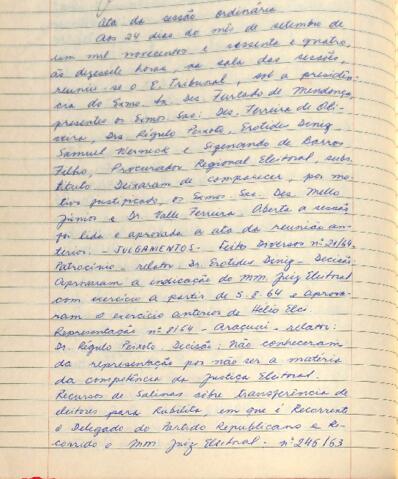 Ata da sessão ordinária
Aos 24 dias do mês de setembro de
um mil novecentos e sessenta e quatro,
às dezessete horas na sala das sessões,
reuniu-se o E. Tribunal, sob a presidên-
cia do Exmo. Sr. Des. Furtado de Mendonça,
presentes os Exmos. Srs: Des. Ferreira de Oli-
veira, Drs. Régulo Peixoto, Erotides Diniz,
Samuel Werneck e Sigenando de Barros
Filho, Procurador Regional Eleitoral, subs-
tituto. Deixaram de comparecer, por mo-
tivo justificado, os Exmos. Srs. Des. Mello
Júnior e Dr. Valle Ferreira. Aberta a sessão,
foi lida e aprovada a ata da reunião an-
terior. - JULGAMENTOS - Feitos Diversos nº 21/64-
Patrocínio - relator, Dr. Erotides Diniz - Decisão:
Aprovaram a indicação do MM. Juiz Eleitoral
com exercício a partir de 5-8-64 e aprova-
ram o exercício anterior de Hélio
Representação nº 8/64 - Araçuaí - relator:
Dr. Régulo Peixoto. Decisão: Não conheceram
da representação por não ser a matéria
da competência da Justiça Eleitoral.
Recursos de Salinas sôbre transferência de
eleitores para Rubelita, em que é Recorrente
o Delegado do Partido Republicano e Re-
corrido o MM. Juiz Eleitoral. - nº 246/63